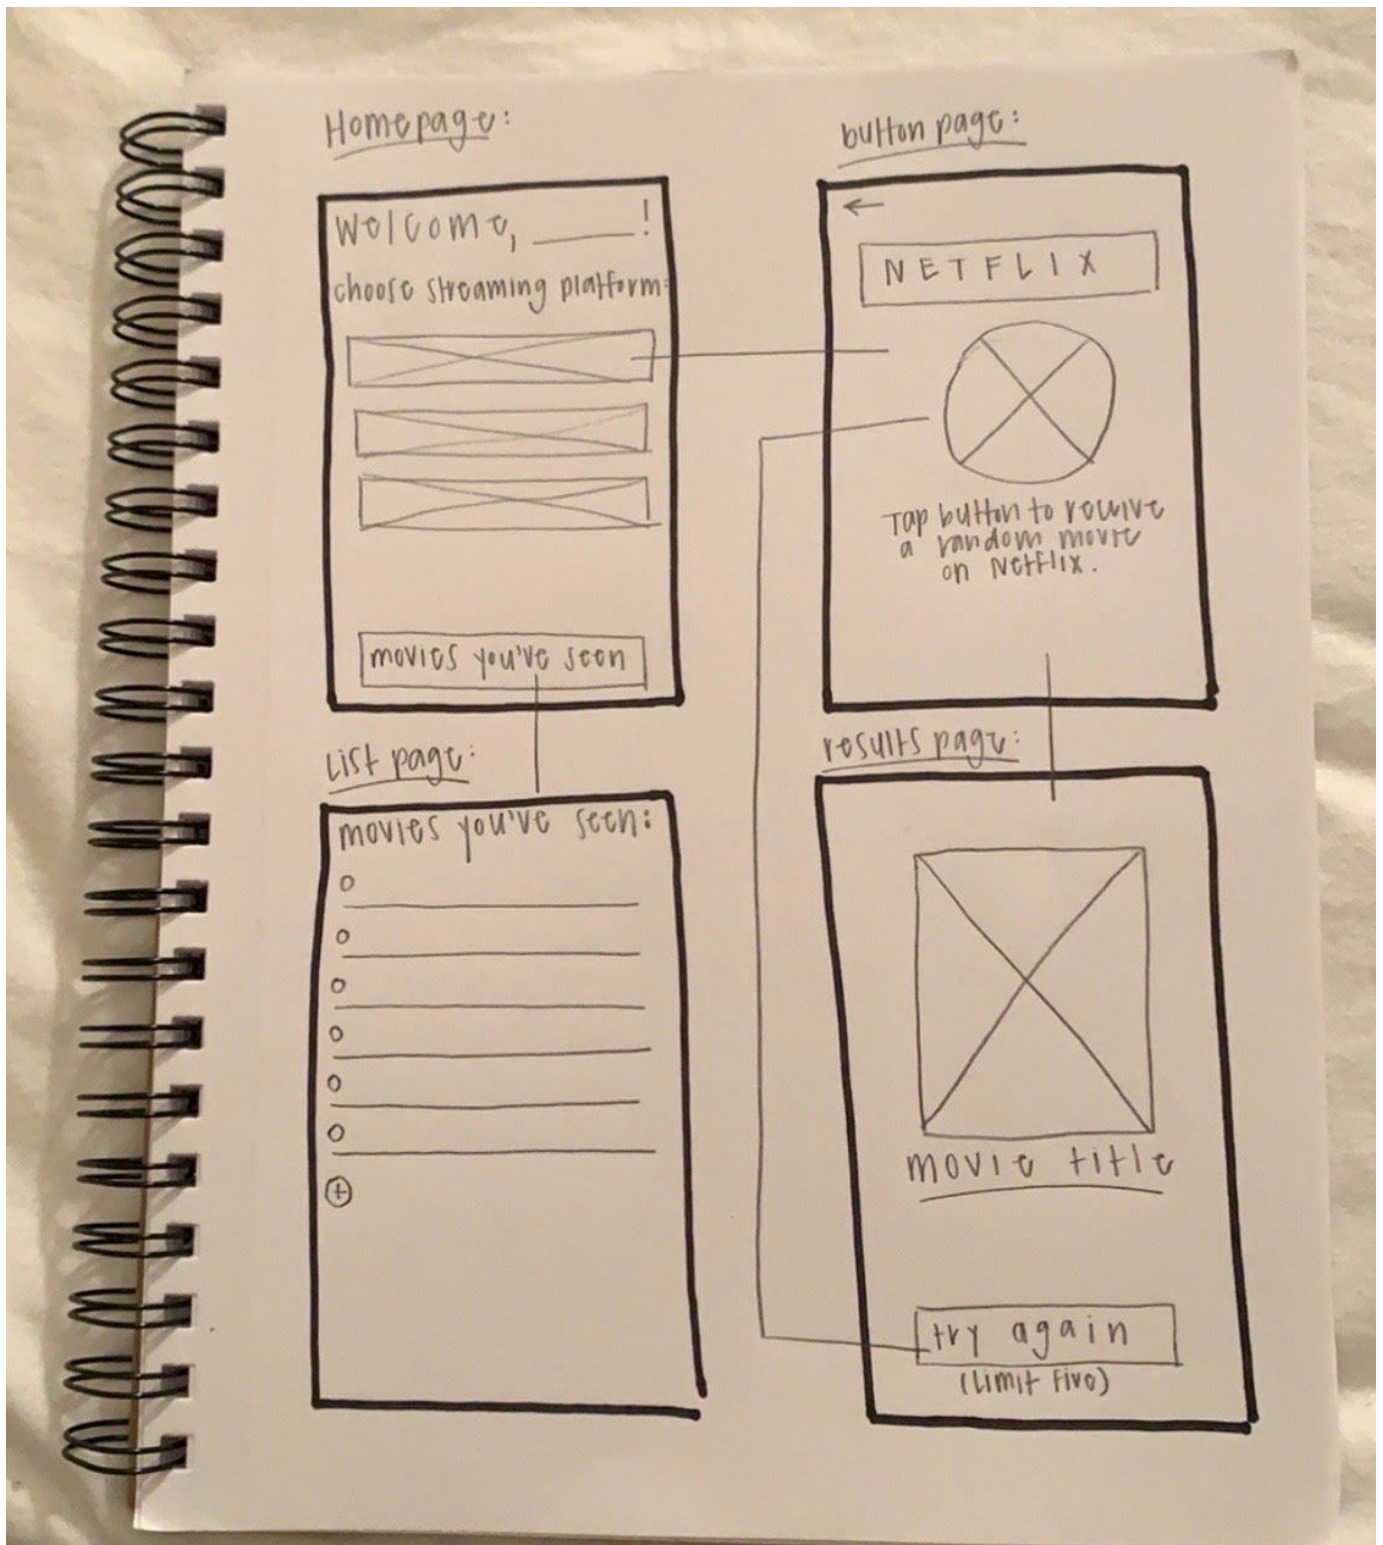 Homepage:
Welcome, ______!
choose streaming platform:
movies you've seen
button page:
←
NETFLIX
Tap button to receive
a random movie
on Netflix.
List page:
movies you've seen:
+
results page:
movie title
try again
(limit five)